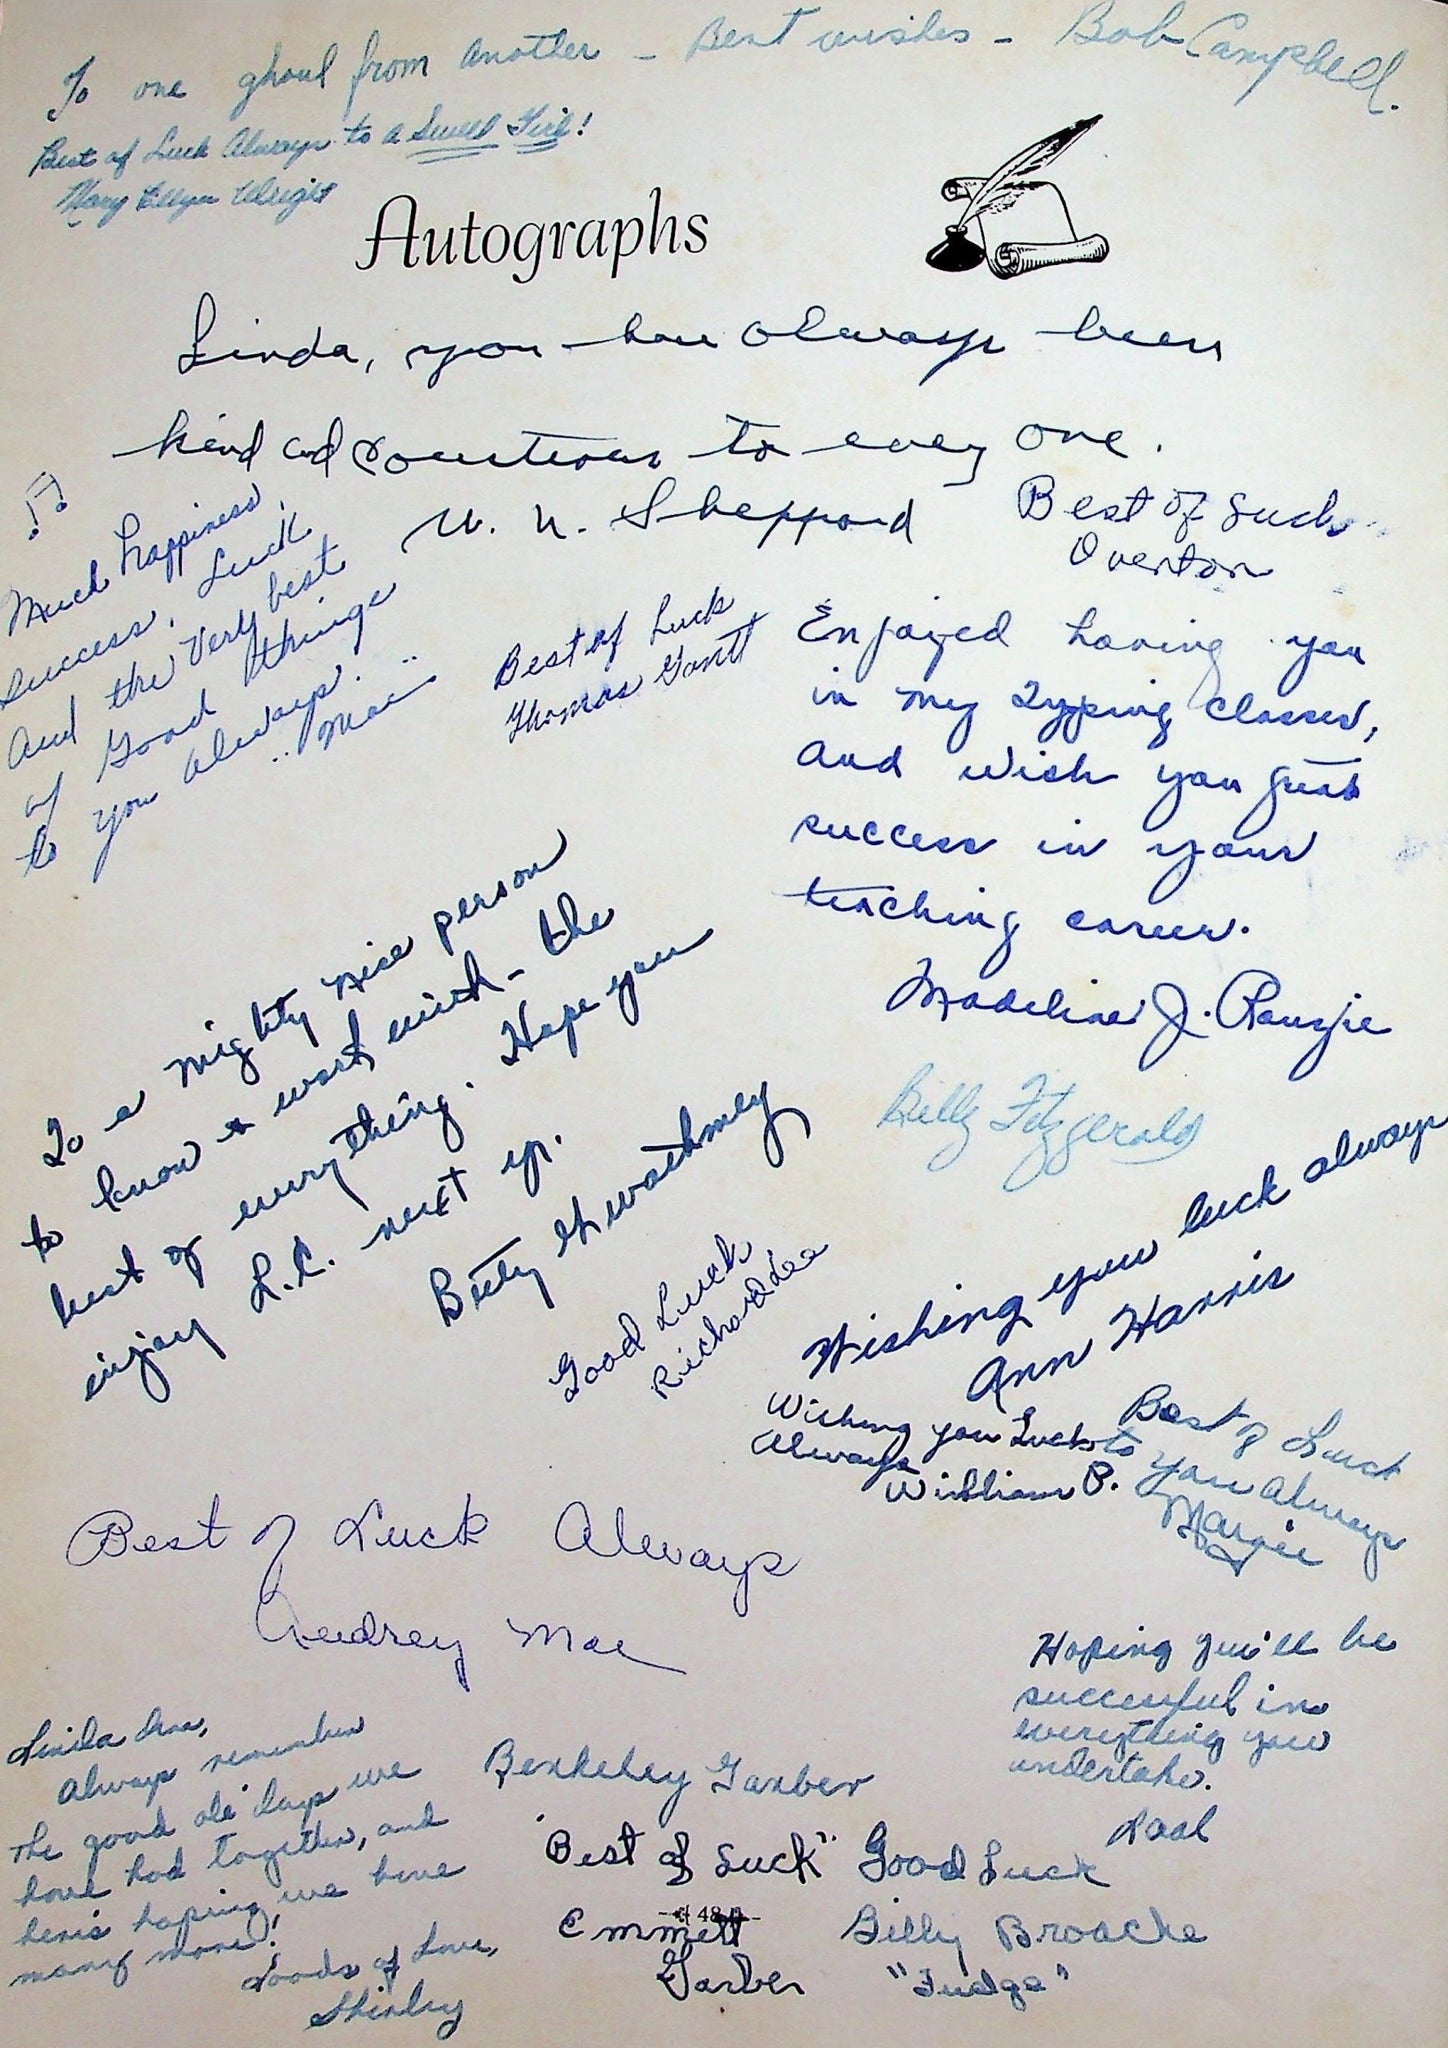 To one ghoul from another - Best wishes - Bob Campbell.
Best of Luck Always to a Swell Girl!
Mary Ellyn Wright
Autographs
Linda, you have always been
kind and courteous to every one.
Sheppard
Best of Luck
Overton
Much happiness,
success, Luck
And the Very best
of Good things
to you always.
Mae
Best of Luck
Thomas Gantt
Enjoyed having you
in my typing classes,
and wish you great
success in your
teaching career.
Madeline J.
To a mighty nice person
to know & work with - the
best of everything. Hope you
enjoy L.C. next yr.
Betty Gwathmey
Billy Fitzgerald
Good Luck
Richard Lee
Wishing you luck always
Ann Harris
Wishing you Luck
Always
William P.
Best of Luck
to you Always
Margie
Best of Luck Always
Audrey Mae
Hoping you'll be
successful in
everything you
undertake.
Linda Ann,
Always remember
the good ole' days we
have had together, and
here's hoping we have
many more!
Loads of Love,
Shirley
Berkeley Garber
"Best of Luck"
Emmett
Garber
Good Luck
Billy Broache
"Fudge"
48